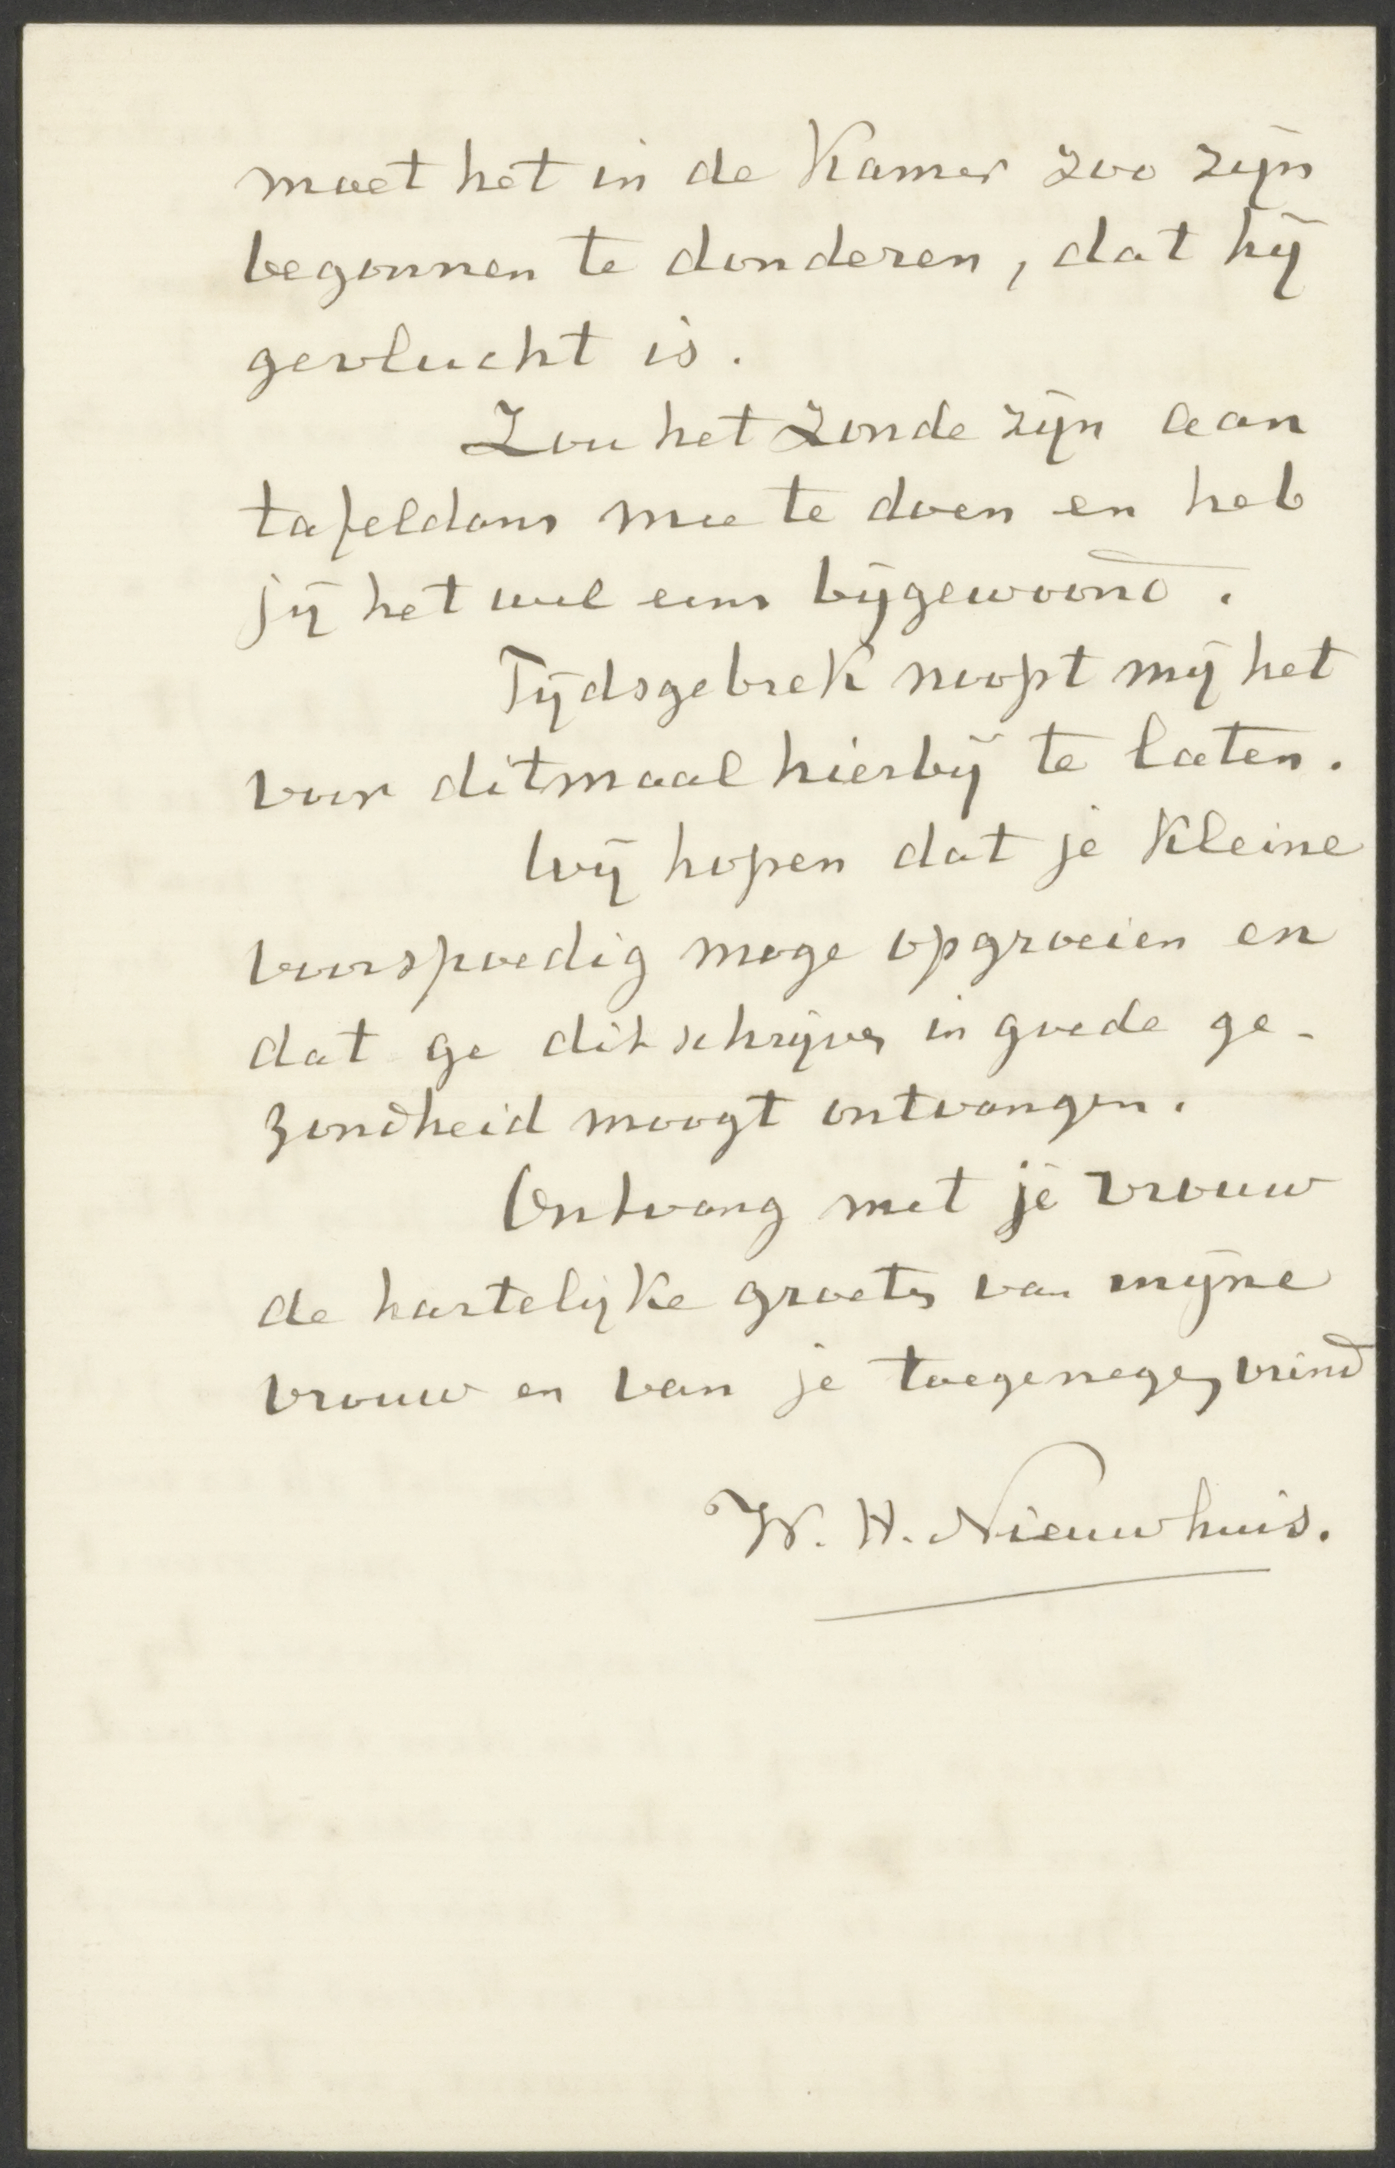 moet het in de Kamer zoo zijn
begonnen te donderen, dat hij
gevlucht is.
Zou het zonde zijn aan
tafeldans mee te doen en heb
jij het wel eens bijgewoond.
Tijdsgebrek noopt mij het
voor ditmaal hierbij te laten.
Wij hopen dat je Kleine
voorspoedig moge opgroeien en
dat ge dit schrijven in goede ge-
zondheid moogt ontvangen.
Ontvang met je vrouw
de hartelijke groeten van mijne
vrouw en van je toegenegen vrind
W. H. Nieuwhuis.